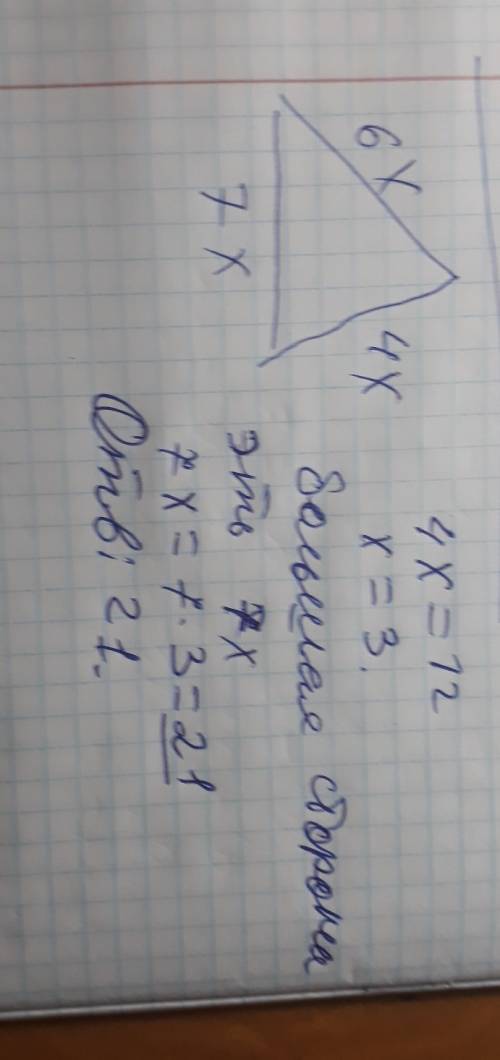 6x
4x
7x
4x = 12
x = 3.
большая сторона
это 7x
7x = 7·3 = 21
Отв: 21.